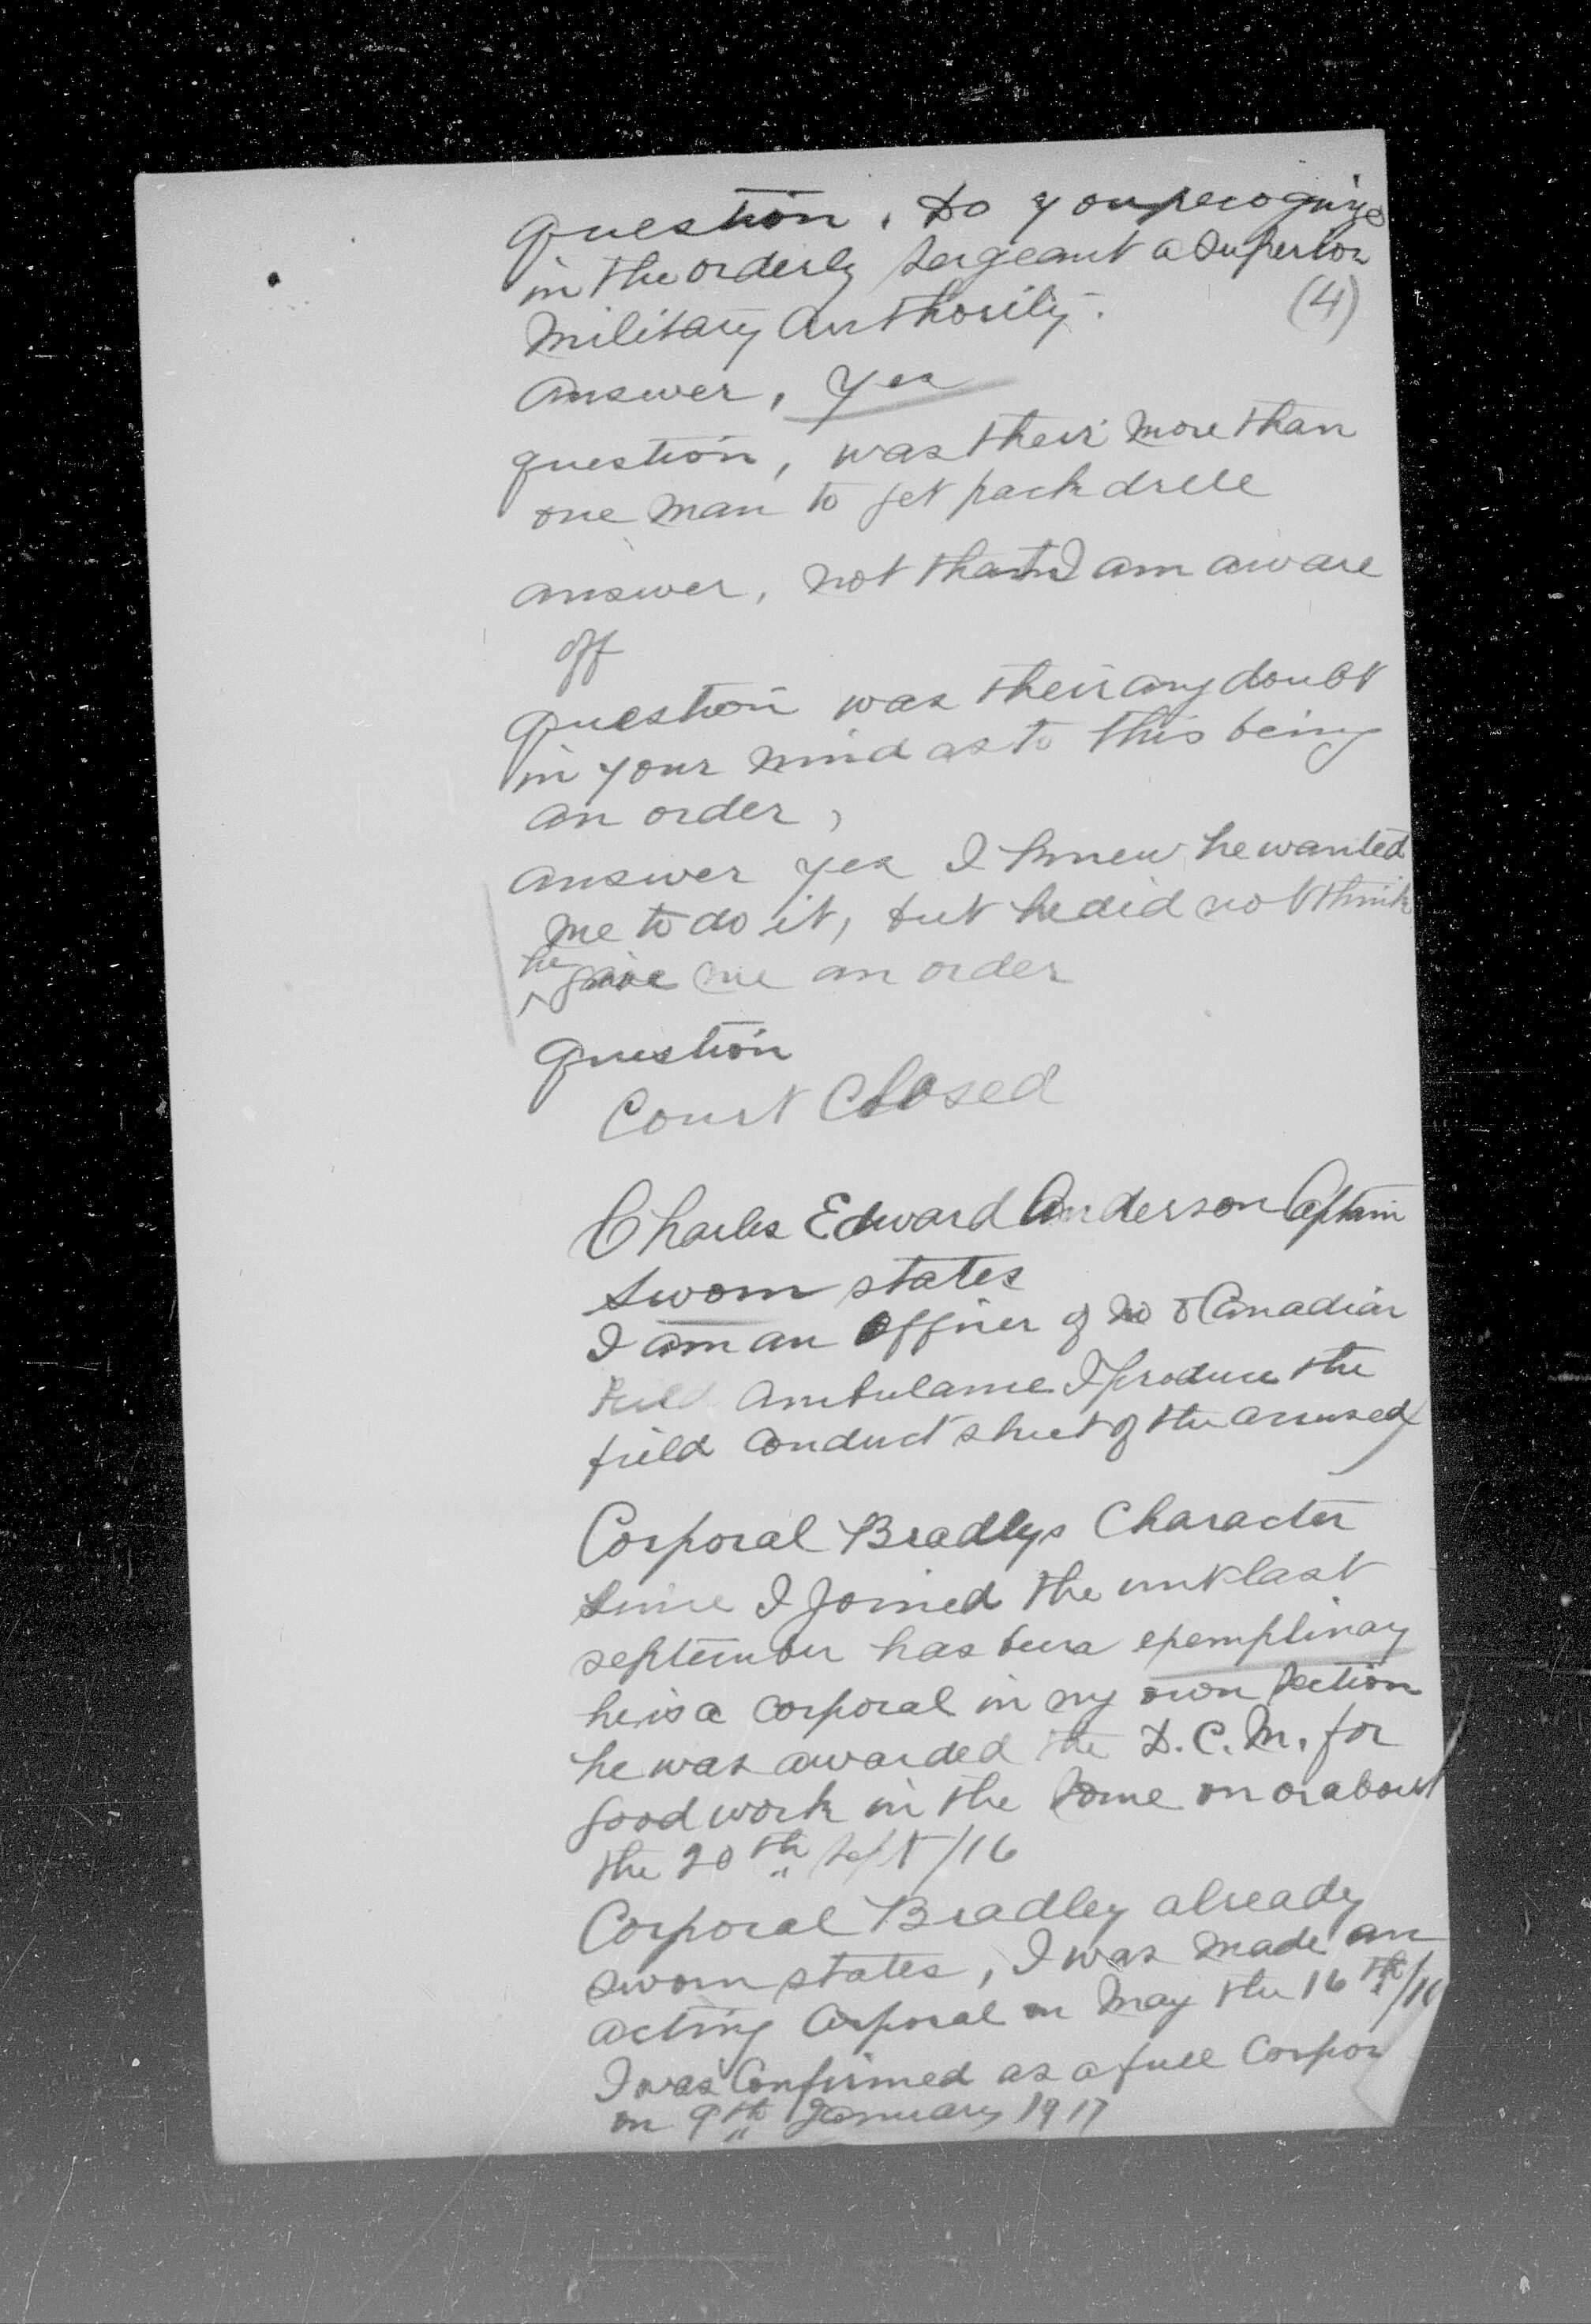 Question, Do you recognize
in the orderly Sergeant a Superior
(4)
Military Authority.
Answer, Yes
question, was their more than
one man to get pack drill
answer, not that I am aware
off
Question was their any doubt
in your mind as to this being
an order,
answer yes I knew he wanted
me to do it, but he did not think
he gave me an order
Question
Court Closed
Charles Edward Anderson Captain
Sworn states
I am an Officer of No Canadian
Field Ambulance I produce the
field Conduct sheet of the accused
Corporal Bradleys Character
Since I joined the unit last
september has been exemplinary
he is a Corporal in my own Section
he was awarded the D.C.M. for
good work in the Some on or about
the 20th Sept/16
Corporal Bradley already
sworn states, I was made an
acting Corporal on May the 16th/16
I was Confirmed as a full Corpor
on 9th January 1917